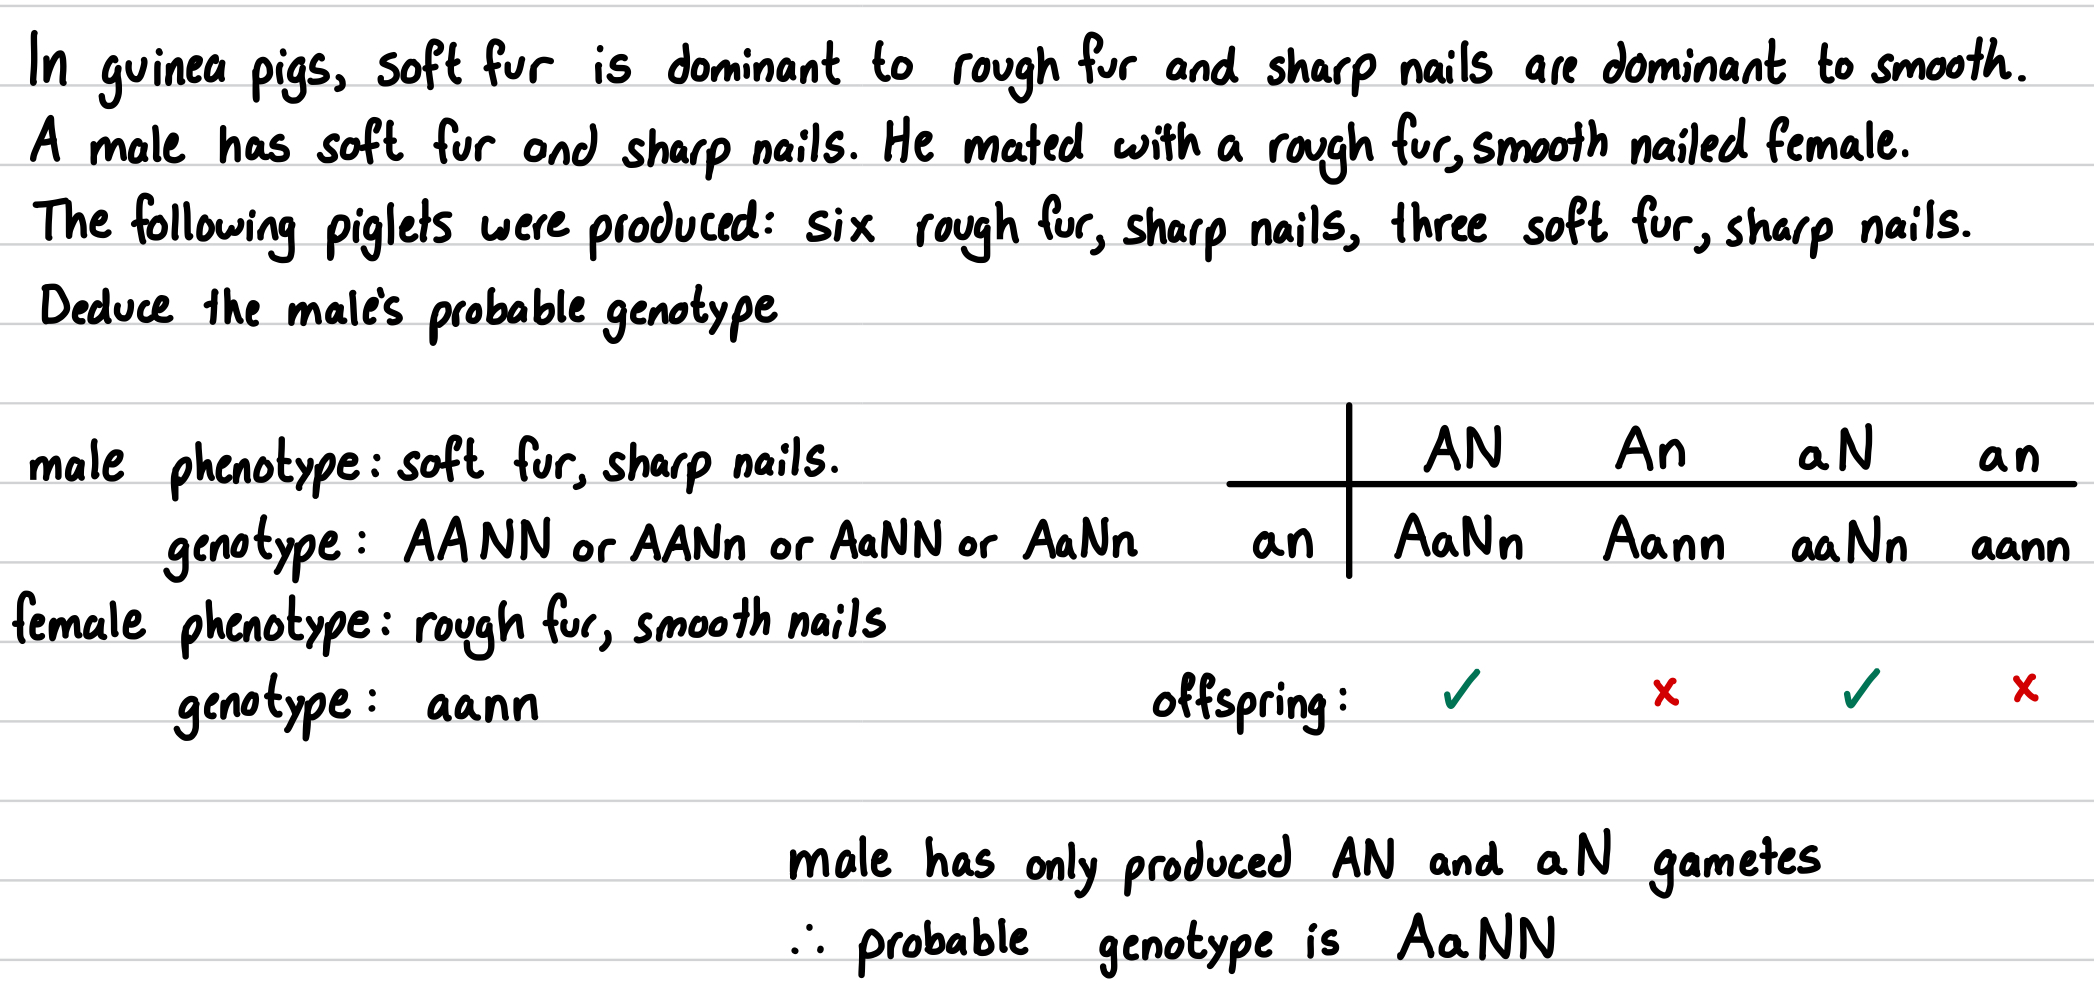 In guinea pigs, soft fur is dominant to rough fur and sharp nails are dominant to smooth.
A male has soft fur and sharp nails. He mated with a rough fur, smooth nailed female.
The following piglets were produced: six rough fur, sharp nails, three soft fur, sharp nails.
Deduce the male's probable genotype
male phenotype: soft fur, sharp nails.
genotype: AANN or AANn or AaNN or AaNn
female phenotype: rough fur, smooth nails
genotype: aann
AN An aN an
an AaNn Aann aaNn aann
offspring: ✓ x ✓ x
male has only produced AN and aN gametes
∴ probable genotype is AaNN